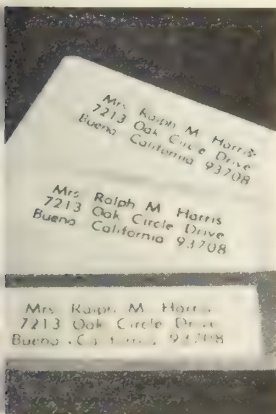 Mrs Ralph M Harris
7213 Oak Circle Drive
Bueno California 93708
Mrs Ralph M Harris
7213 Oak Circle Drive
Bueno California 93708
Mrs Ralph M Harris
7213 Oak Circle Drive
Bueno California 93708